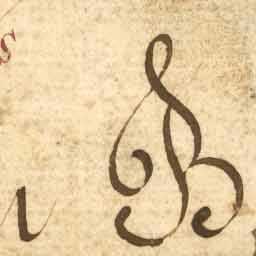 s
u B